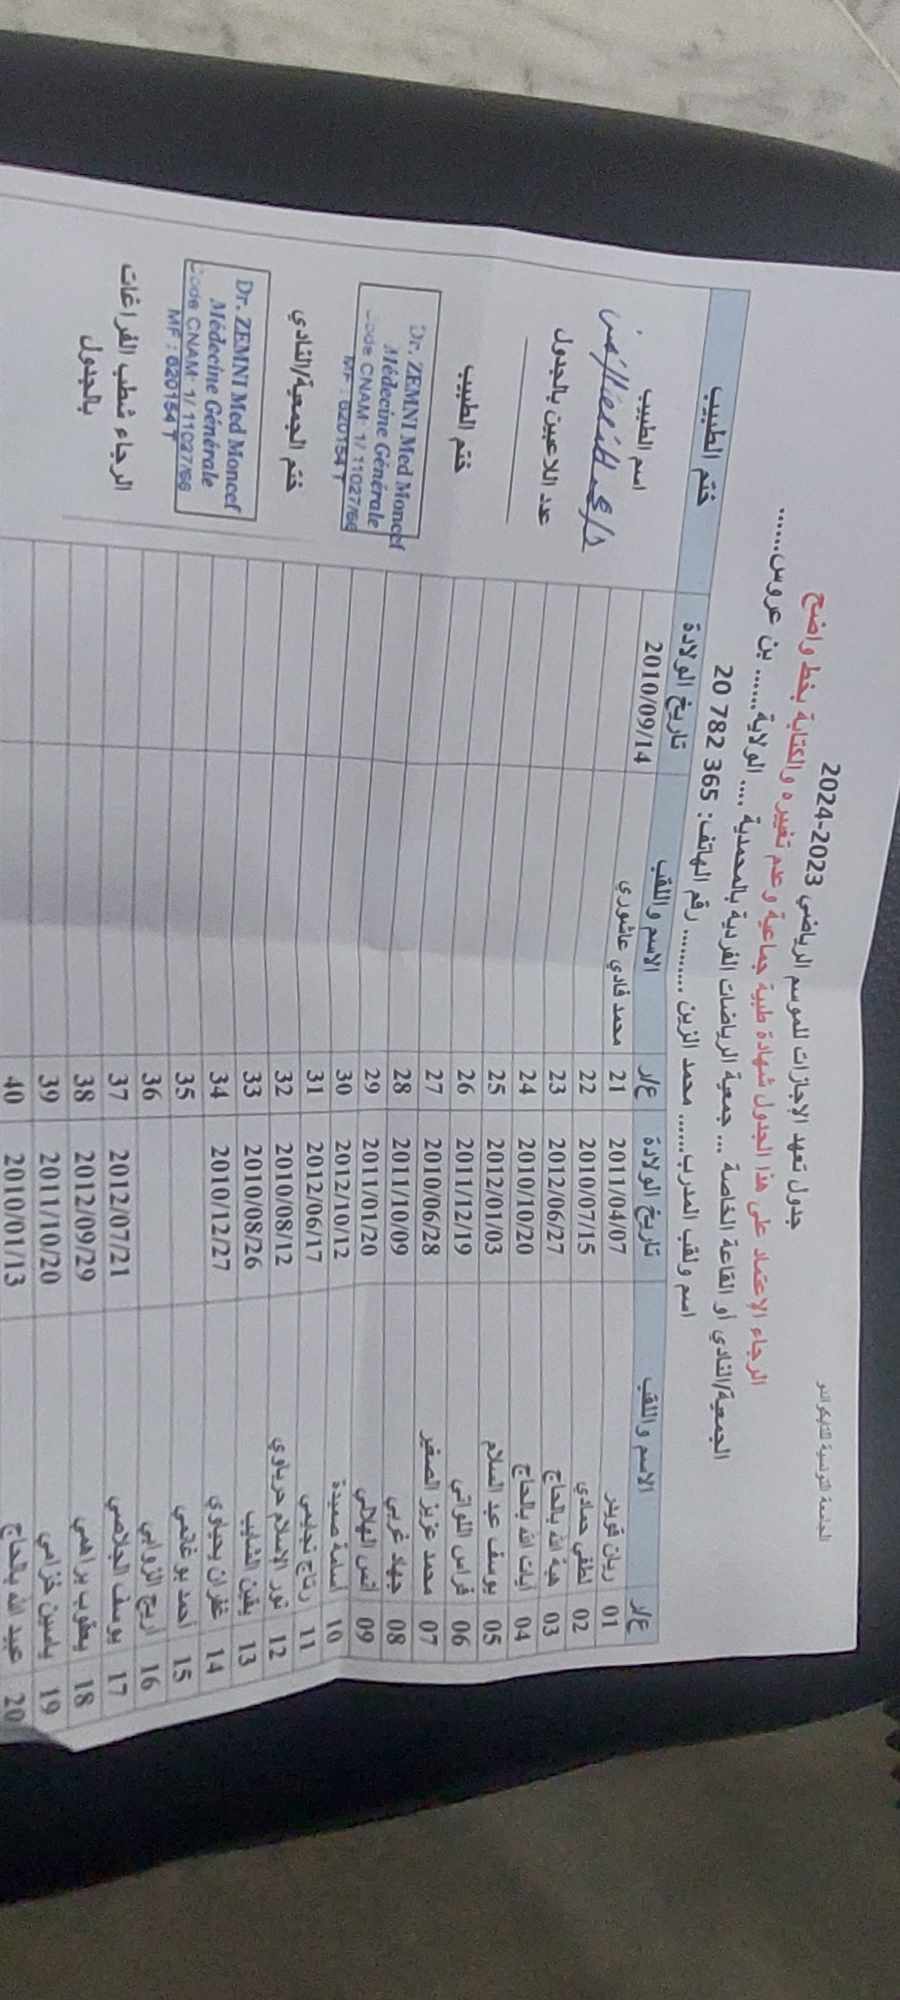 الجامعة التونسية للتايكواندو
جدول تعهد الإجازات للموسم الرياضي 2023-2024
الرجاء الاعتماد على هذا الجدول شهادة طبية جماعية وعدم تغييره والكتابة بخط واضح
الجمعية/النادي أو القاعة الخاصة ... جمعية الرياضات الفردية بالمحمدية .... الولاية...... بن عروس......
اسم ولقب المدرب...... محمد الزين .......... رقم الهاتف: 365 782 20
ع/ر الاسم واللقب تاريخ الولادة ع/ر الاسم واللقب تاريخ الولادة ختم الطبيب
01 ريان قويدر 2011/04/07 21 محمد فادي عاشوري 2010/09/14
02 لطفي حمادي 2010/07/15 22
03 هبة الله بالحاج 2012/06/27 23
04 ايات الله بالحاج 2010/10/20 24
05 يوسف عبد السلام 2012/01/03 25
06 فراس اللواتي 2011/12/19 26
07 محمد عزيز الصغير 2010/06/28 27
08 جهاد غربي 2011/10/09 28
09 انس الهلالي 2011/01/20 29
10 اسامة صميدة 2012/10/12 30
11 رتاج نجايمي 2012/06/17 31
12 نور الاسلام حرباوي 2010/08/12 32
13 يقين الشايب 2010/08/26 33
14 غفران يحياوي 2010/12/27 34
15 احمد بوغانمي 35
16 اريج الزوابي 36
17 يوسف الجلاصي 2012/07/21 37
18 يعقوب براهمي 2012/09/29 38
19 ياسين خزامي 2011/10/20 39
20 عبيد الله بالحاج 2010/01/13 40
اسم الطبيب
عدد اللاعبين بالجدول
ختم الطبيب
Dr. ZEMNI Med Moncef
Médecine Générale
Code CNAM: 1/ 11027/66
MF : 620154 T
ختم الجمعية/النادي
Dr. ZEMNI Med Moncef
Médecine Générale
Code CNAM: 1/ 11027/66
MF : 620154 T
الرجاء شطب الفراغات
بالجدول